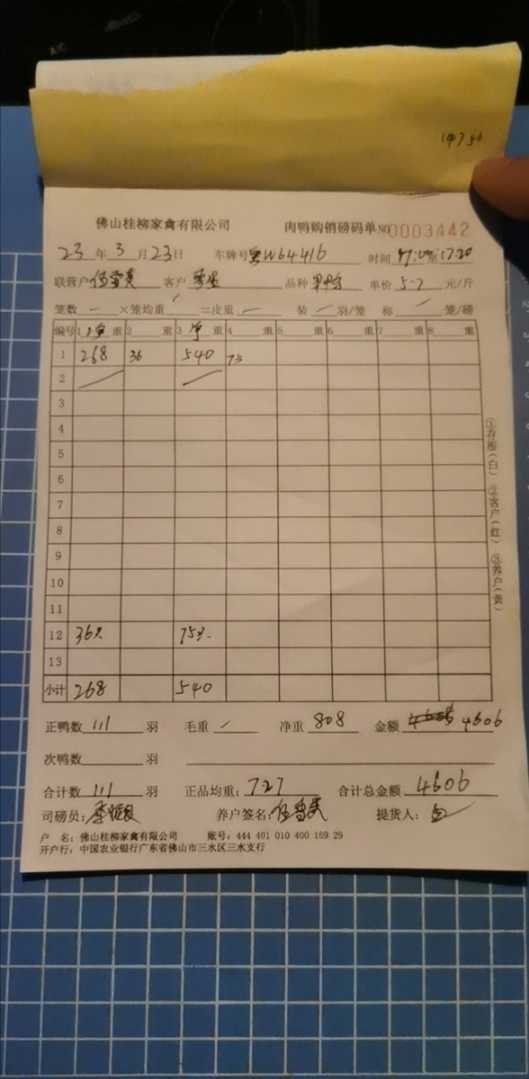 佛山桂柳家禽有限公司 肉鸭购销磅码单 NO 0003442
23 年 3 月 23 日 车牌号 粤W64416 时间
联营户 客户 品种 单价 5.7 元/斤
笼数 一 ×笼均重 / =皮重 一 装 / 羽/笼 称 / 笼/磅
编号 1 净 重 2 重 3 净 重 4 重 5 重 6 重 7 重 8 重
1 268 36 540 75
2
3
4
5
6
7
8
9
10
11
12 36只 75只
13
小计 268 540
正鸭数 111 羽 毛重 / 净重 808 金额 4606
次鸭数 羽
合计数 111 羽 正品均重: 7.27 合计总金额 4606
司磅员: 养户签名: 提货人:
户 名: 佛山桂柳家禽有限公司 账号: 444 401 010 400 169 29
开户行: 中国农业银行广东省佛山市三水区三水支行
①存根(白) ②客户(红) ③养户(黄)